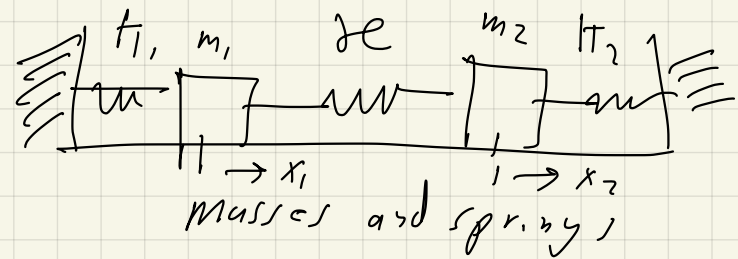 k₁, m₁ ϰ m₂ k₂
→ x₁ → x₂
masses and springs